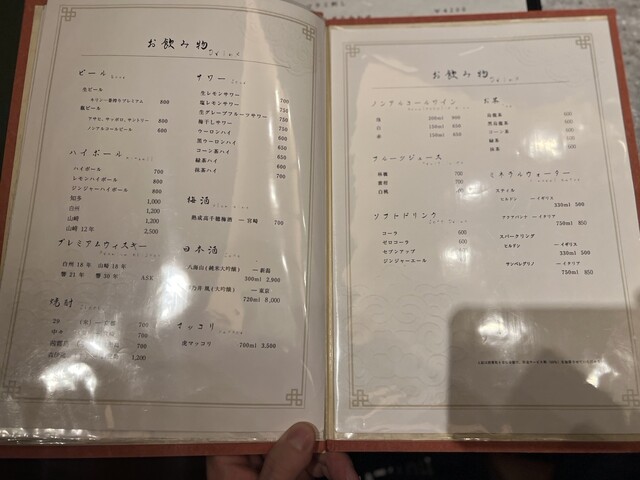 お飲み物
ビール
生ビール
キリン一番搾りプレミアム 800
瓶ビール
アサヒ、サッポロ、サントリー 800
ノンアルコールビール 600
ハイボール
ハイボール 700
レモンハイボール 800
ジンジャーハイボール 800
知多 1,000
白州 1,200
山崎 1,200
山崎 12年 2,500
プレミアムウィスキー
白州 18年 山崎 18年
響 21年 響 30年 ASK
焼酎
700
中々 700
700
1,200
サワー
生レモンサワー 700
塩レモンサワー 750
生グレープフルーツサワー 750
梅干しサワー 750
ウーロンハイ 600
黒ウーロンハイ 650
コーン茶ハイ 650
緑茶ハイ 600
抹茶ハイ 700
梅酒
熟成高千穂梅酒 ―宮崎 700
日本酒
八海山(純米大吟醸) ―新潟
300ml 2,900
(大吟醸) ―東京
720ml 8,000
マッコリ
虎マッコリ 700ml 3,500
お飲み物
ノンアルコールワイン
泡 200ml 800
白 150ml 600
赤 150ml 600
フルーツジュース
林檎 700
蜜柑 700
白桃
ソフトドリンク
コーラ 600
ゼロコーラ 600
セブンアップ
ジンジャーエール
お茶
烏龍茶
黒烏龍茶
コーン茶
緑茶
抹茶
ミネラルウォーター
スティル
ヒルドン ―イギリス
330ml 500
アクアパンナ ―イタリア
750ml 850
スパークリング
ヒルドン ―イギリス
330ml 500
サンペレグリノ ―イタリア
750ml 850